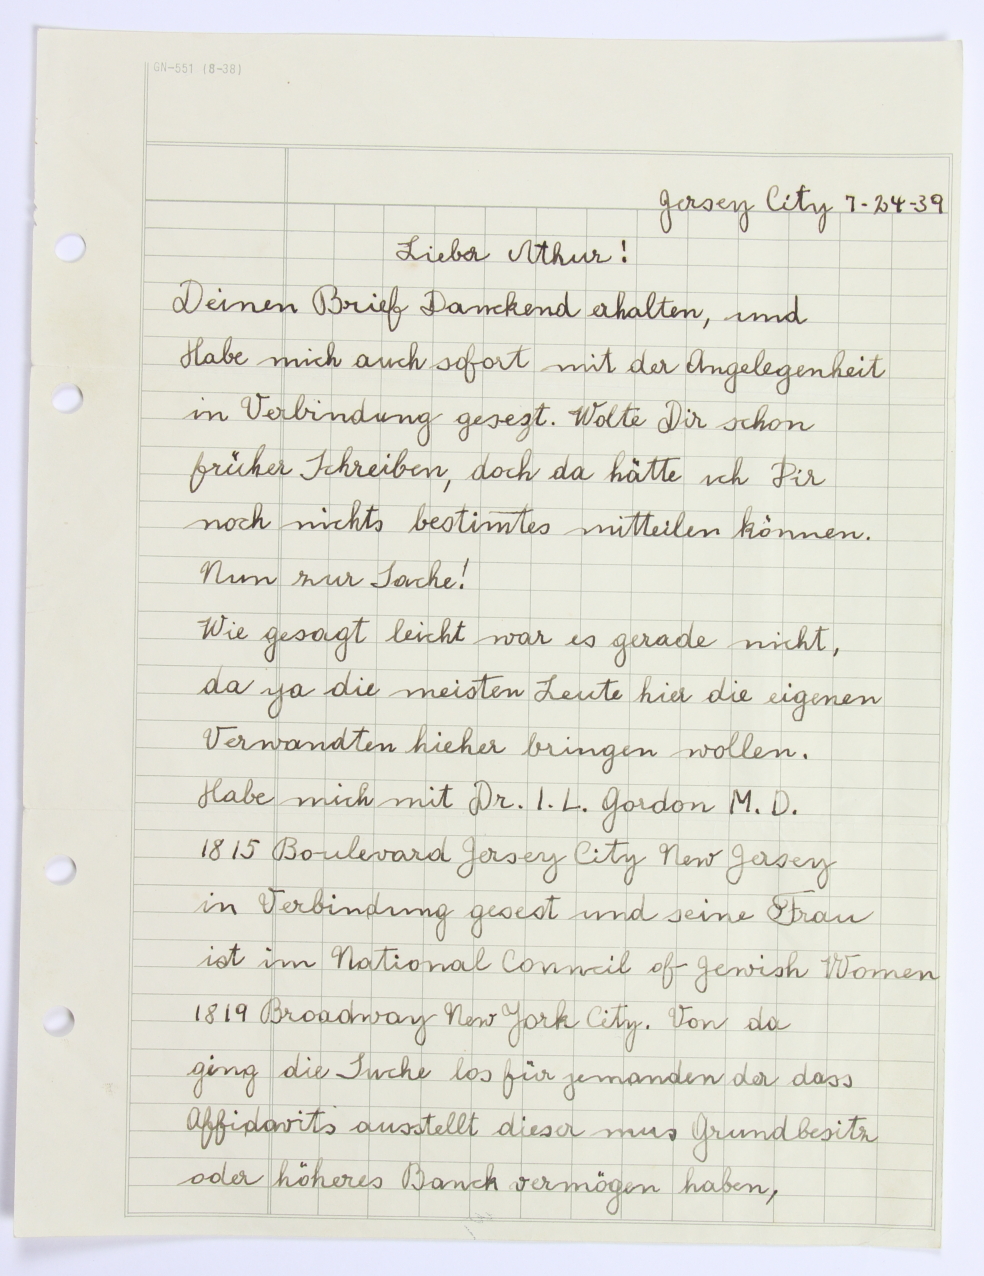 GN-551 (8-38)
Jersey City 7-24-39
Lieber Athur!
Deinen Brief Danckend erhalten, und
Habe mich auch sofort mit der Angelegenheit
in Verbindung gesezt. Wolte Dir schon
früher Schreiben, doch da hätte ich Dir
noch nichts bestimtes mitteilen können.
Nun zur Sache!
Wie gesagt leicht war es gerade nicht,
da ja die meisten Leute hier die eigenen
Verwandten hieher bringen wollen.
Habe mich mit Dr. I. L. Gordon M. D.
1815 Boulevard Jersey City New Jersey
in Verbindung gesest und seine Frau
ist im National Conncil of Jewish Women
1819 Broadway New York City. Von da
ging die Suche los für jemanden der dass
Affidavits ausstellt dieser mus Grundbesitz
oder höheres Banck vermögen haben,